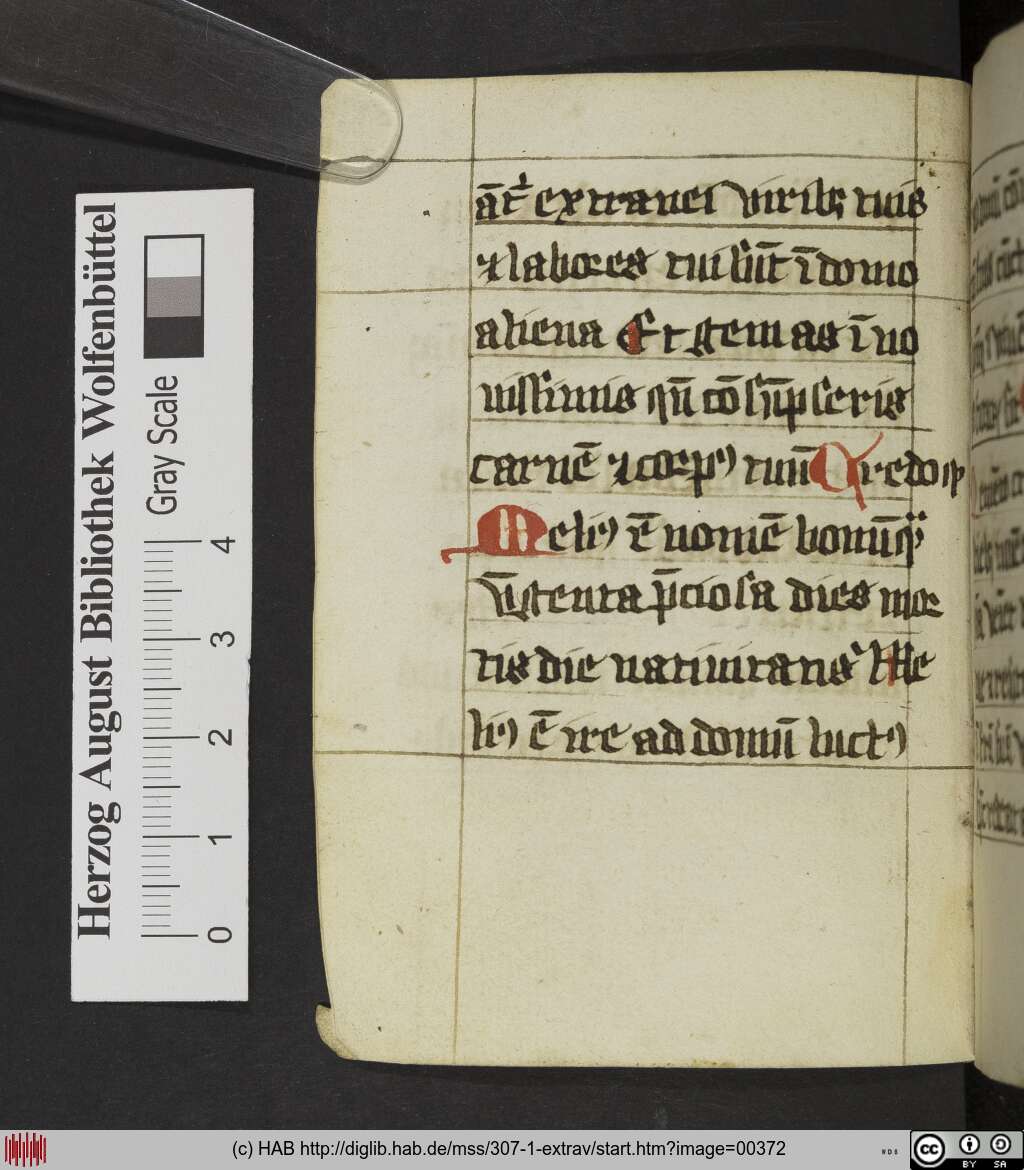 āt᷑ extranei viribꝫ tuis
⁊ labores tui sūt ī domo
aliena Et gemas ī no
uissimis qn̄ cōsūpseris
carnē ⁊ corpꝰ tuū Credo
Meliꝰ ē nomē bonū qͣ
vn̄gtenta p̄ciosa dies mor
tis die natiuitatis Me
liꝰ ē ire ad domū luctꝰ
Herzog August Bibliothek Wolfenbüttel
Gray Scale
0 1 2 3 4
(c) HAB http://diglib.hab.de/mss/307-1-extrav/start.htm?image=00372
WDB
cc BY SA